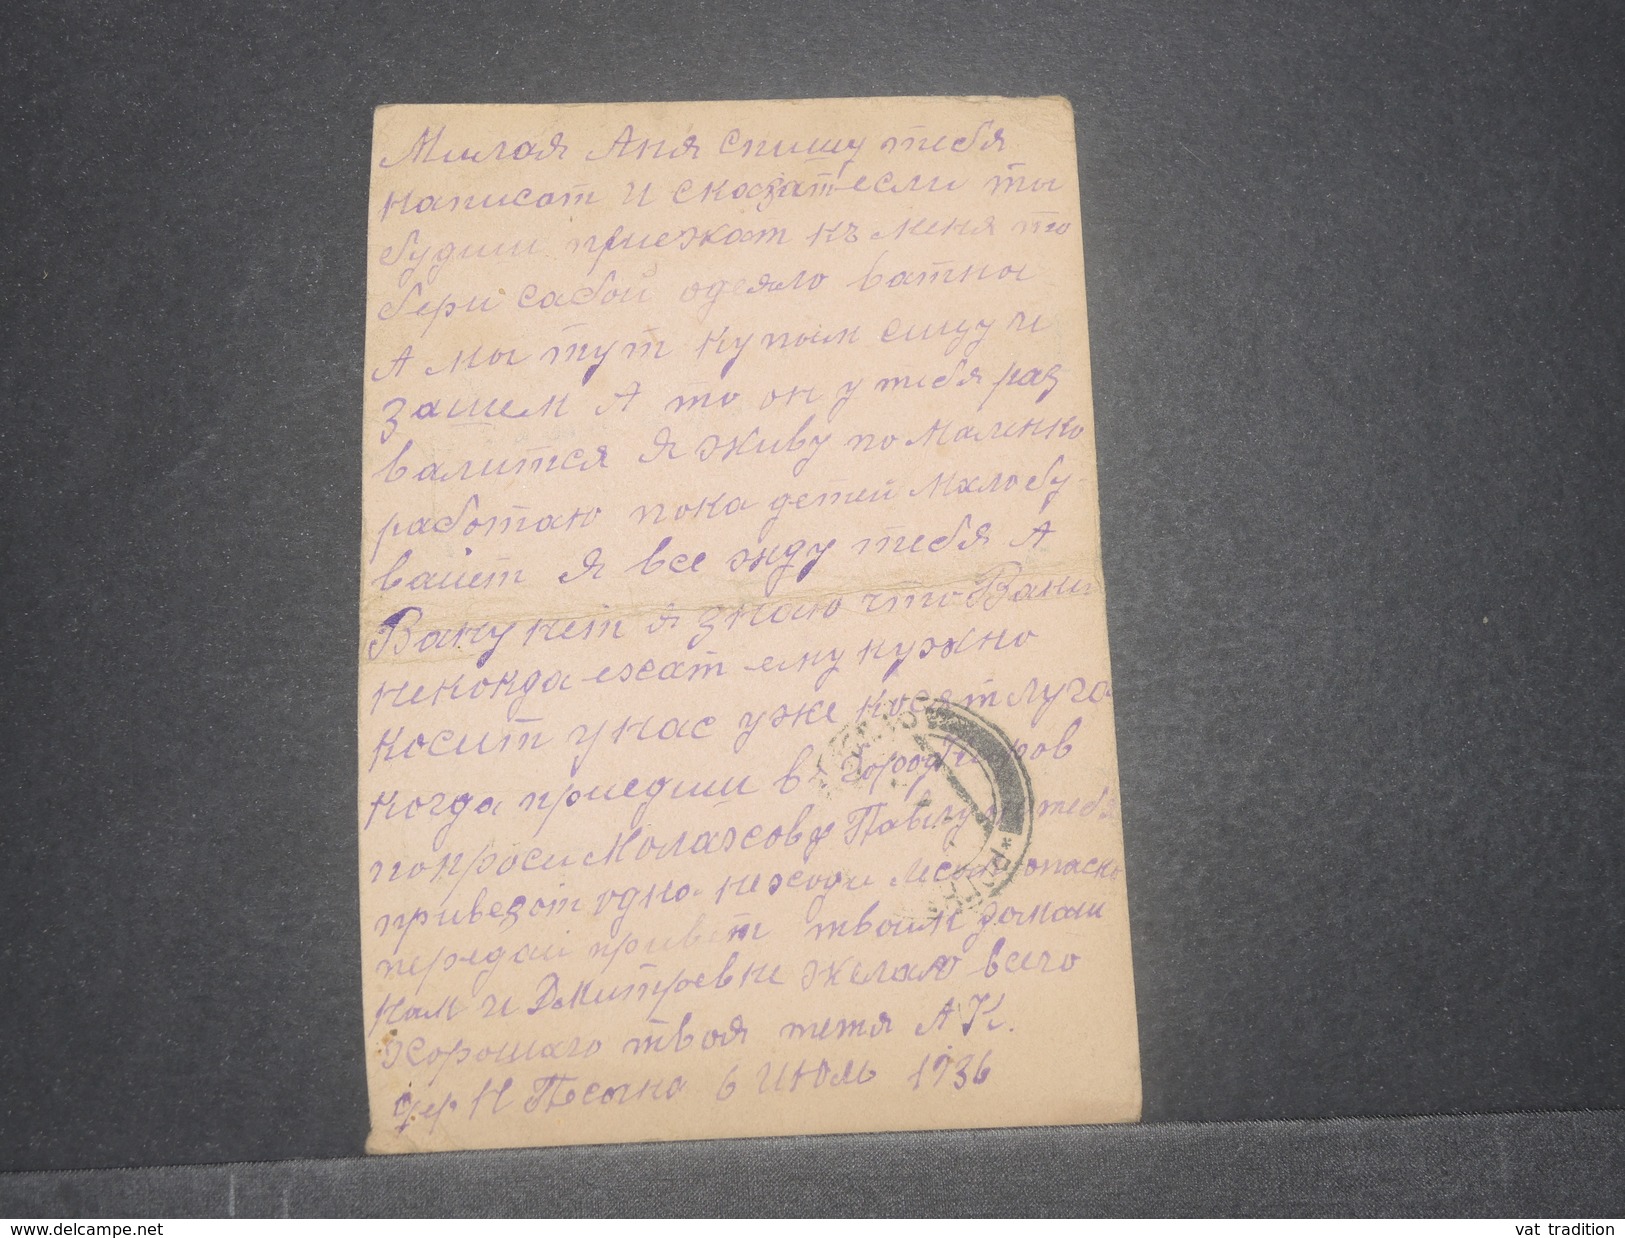 Милая Аня спишу тебя
написат и сказат если ты
будиш приежат къ меня то
бери сабой одеяло ватны
А мы тут купим ситцу и
зашем А то он у тебя раз
валится Я живу по маленко
работаю пока детей мало бу-
вайет я все жду тебя А
Ваню нет я знаю что Вани
некокда ехат ему нужно
косит у нас уже косят луга
когда приедиш въ город Киров
попроси Молахову Павлу и тебя
привезот одна неходи лесом опасно
передай привет твоим домаш
ним и Дмитревне желаю всего
хорошаго твоя тетя А К.
дер Н 6 июль 1936
www.delcampe.net
vat tradition